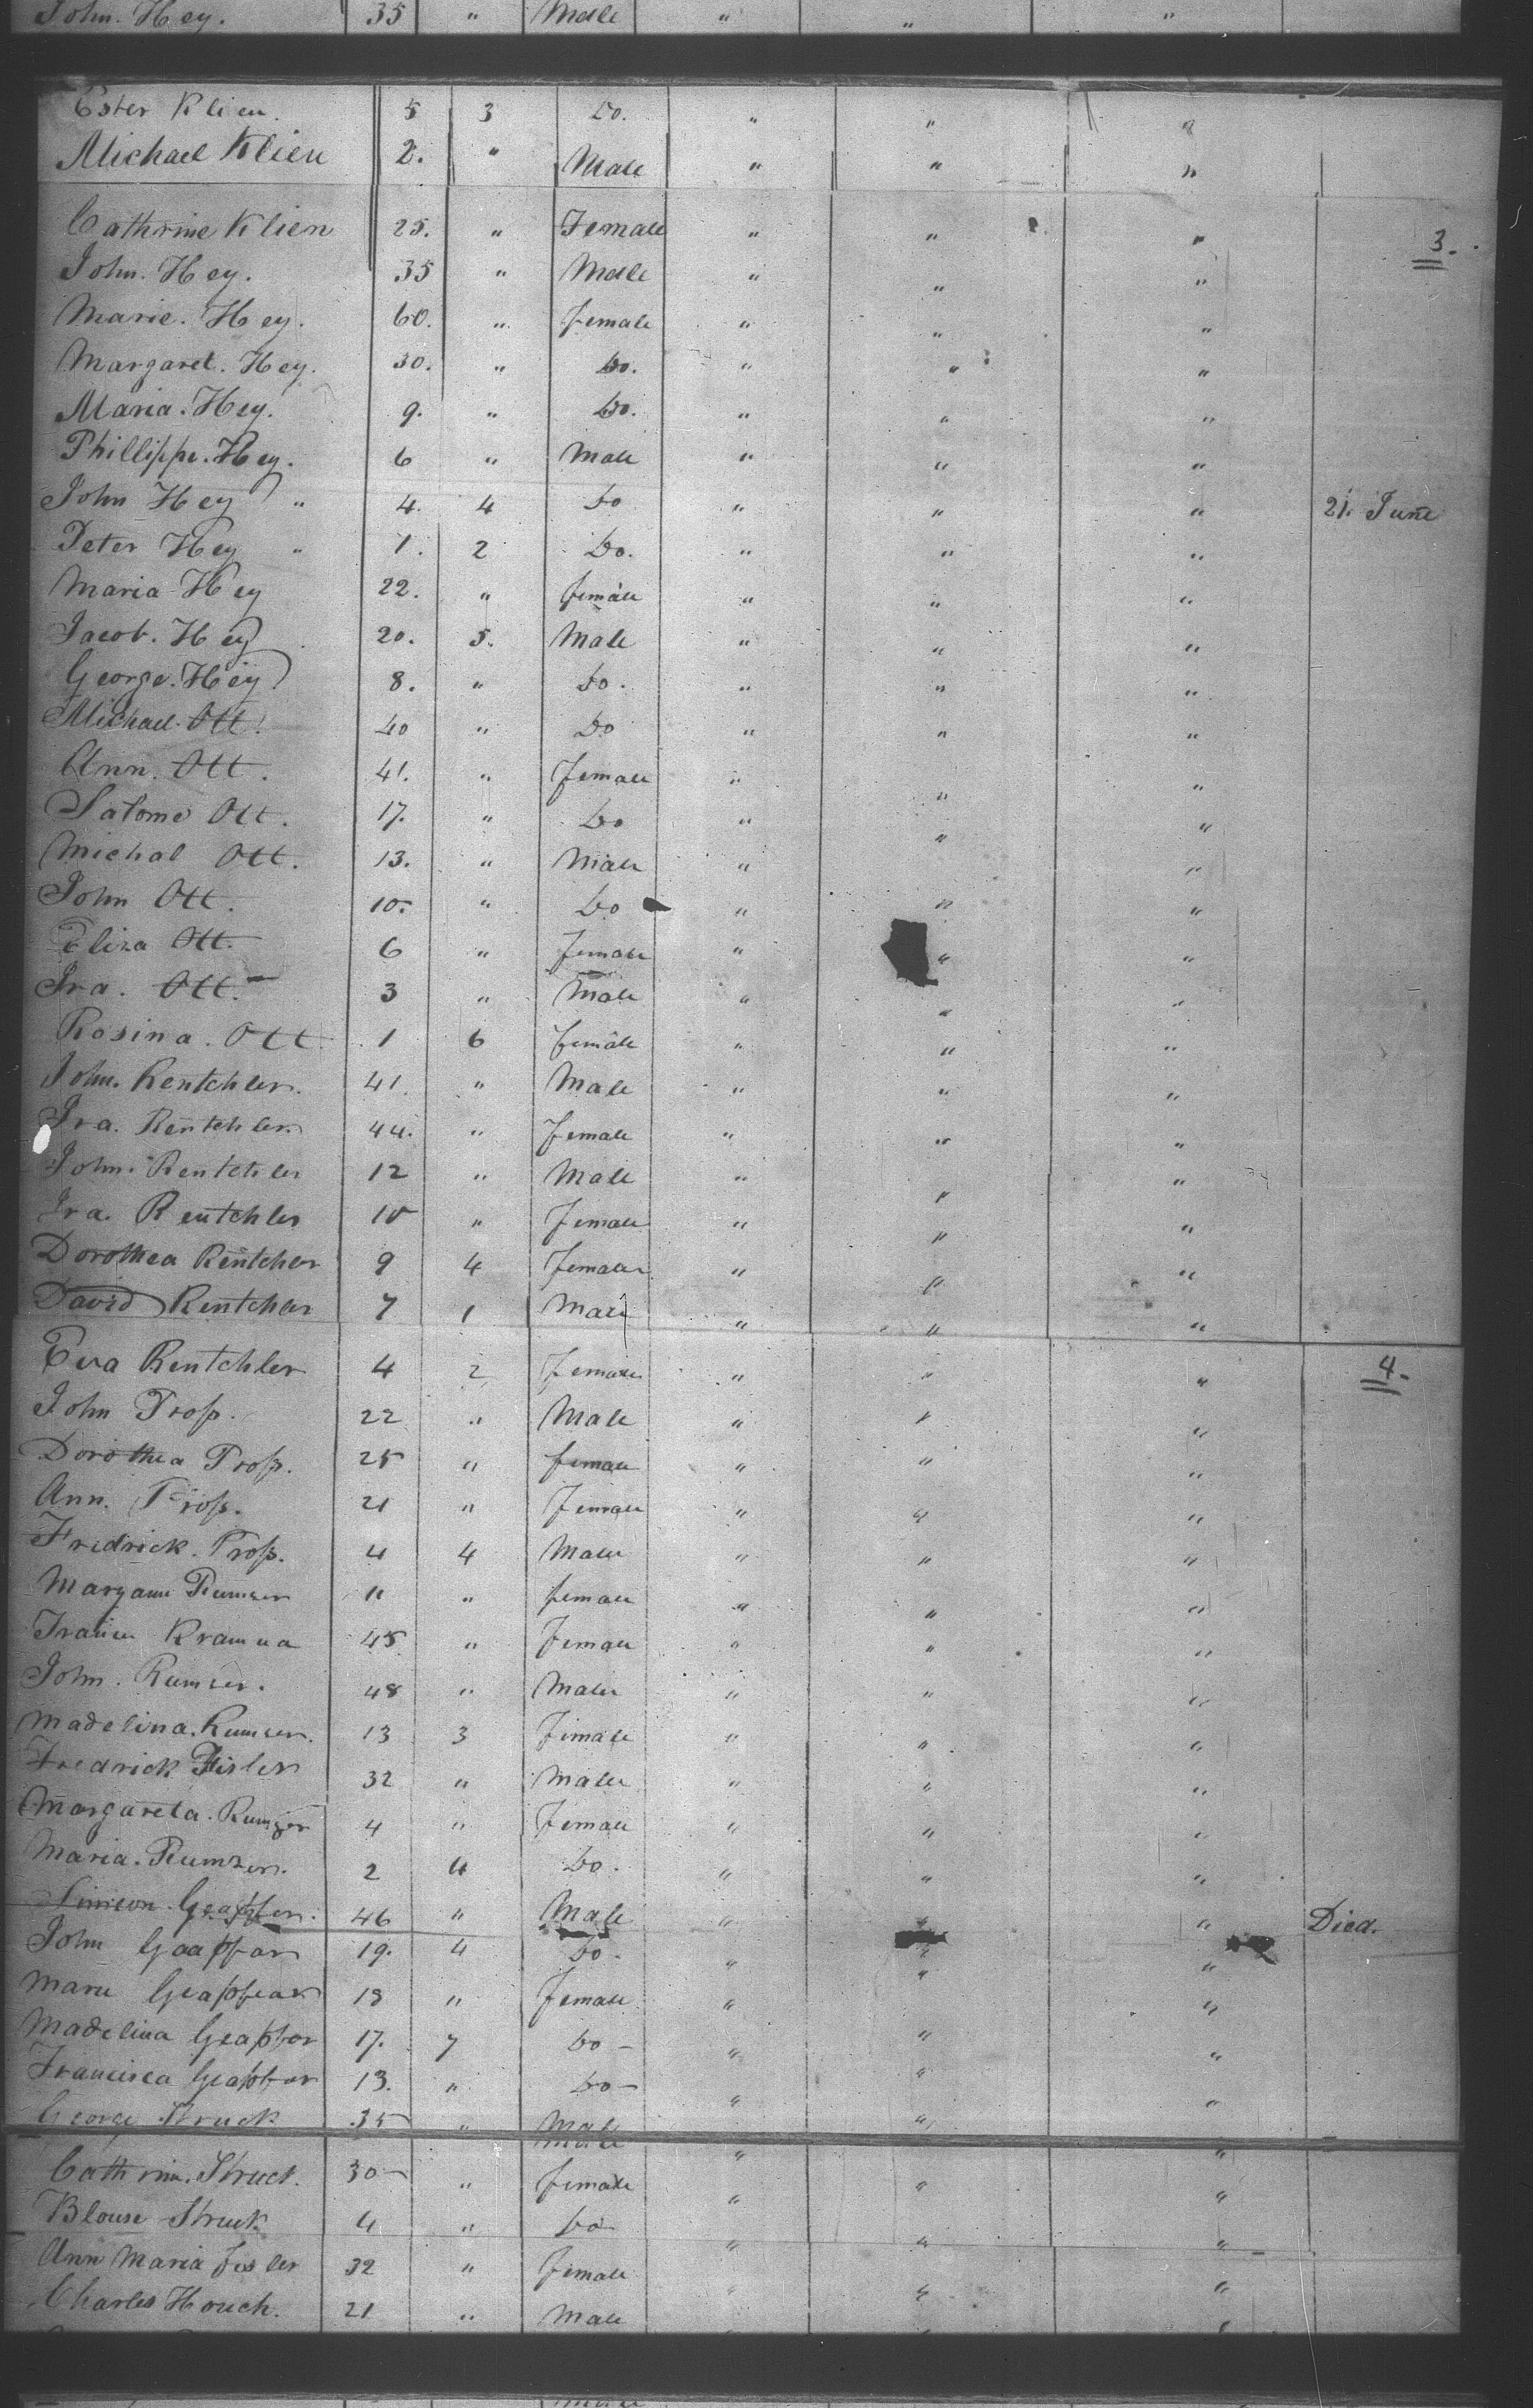 John. Hey. 35 " Male " " "
Ester Klien. 5 3 Do. " " "
Michael Klien 2. " Male " " "
Cathrine Klien 25. " Female " " "
3.
John. Hey. 35 " Male " " "
Marie. Hey. 60. " female " " "
Margaret. Hey. 30. " Do. " " "
Maria. Hey. 9. " Do. " " "
Phillippe. Hey. 6 " Male " " "
John Hey " 4. 4 Do " " " 21. June
Peter Hey " 1. 2 Do. " " "
Maria Hey 22. " female " " "
Jacob. Hey 20. 5. Male " " "
George. Hey 8. " Do. " " "
Michael. Ott. 40 " Do " " "
Ann. Ott. 41. " female " " "
Salome Ott. 17. " Do " " "
Michal Ott. 13. " Male " " "
John Ott. 10. " Do " " "
Eliza Ott. 6 " female " " "
Ira. Ott. 3 " Male " " "
Rosina. Ott 1 6 female " " "
John. Rentchler. 41. " Male " " "
Ira. Rentchler. 44. " female " " "
John. Rentchler 12 " Male " " "
Ira. Rentchler 10 " female " " "
Dorothea Rentcher 9 4 female " " "
David Rentchler 7 1 Male " " "
Eva Rentchler 4 2 female " " "
4.
John Prosp. 22 " Male " " "
Dorothea Prosp. 25 " female " " "
Ann. Prosp. 21 " Female " " "
Fredrick. Prosp. 4 4 Male " " "
Maryann Rumser 11 " female " " "
Kramna 45 " Female " " "
John. Rumser. 48 " Male " " "
Madelina. Rumser. 13 3 Female " " "
Fredrick Fisler 32 " Male " " "
Margareta. Rumser 4 " Female " " "
Maria. Rumser. 2 4 Do. " " "
Simeon 46 " Male " " " Died.
John 19. 4 Do. " " "
Marie 18 " Female " " "
Madelina 17. 7 Do - " " "
Francisca 13. " Do - " " "
George Struck 35 " Male " " "
Cathrin. Struct. 30 " female " " "
Blouse Struck 4 " Do " " "
Ann Maria Fisler 32 " Female " " "
Charles Houch. 21 " Male " " "